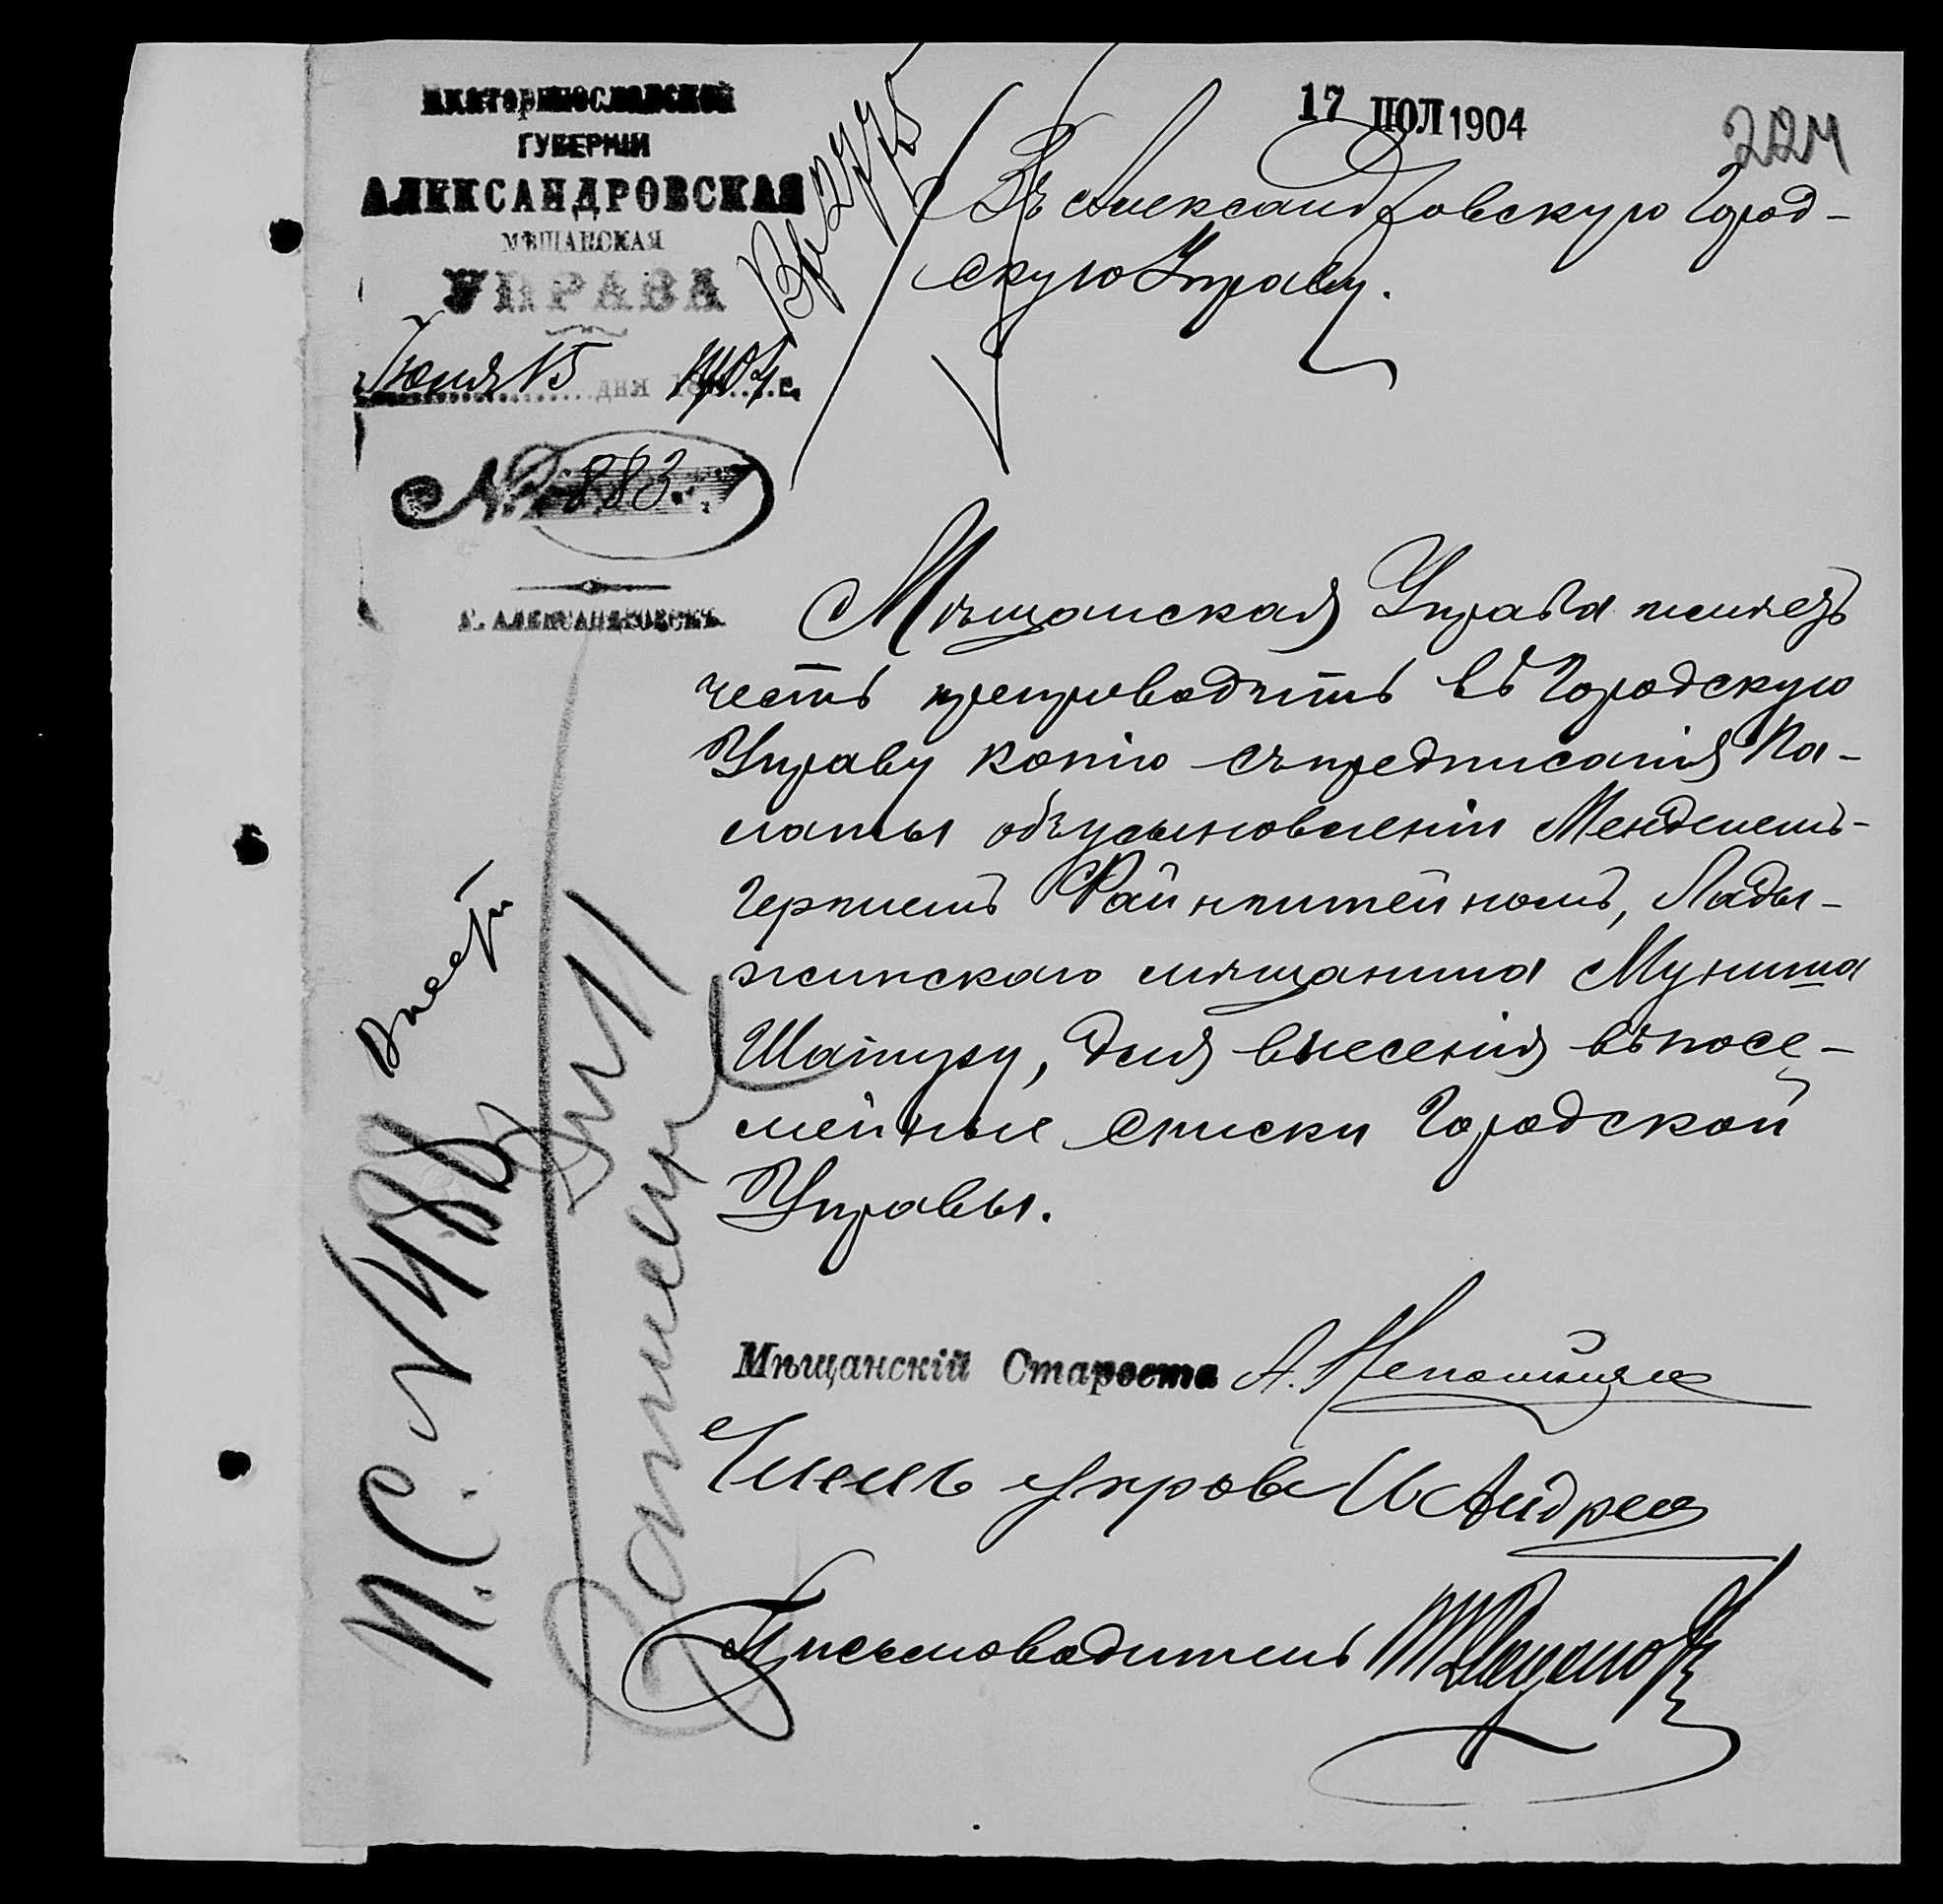 ЕКАТЕРИНОСЛАВСКОЙ
ГУБЕРНІИ
АЛЕКСАНДРОВСКАЯ
МѢЩАНСКАЯ
УПРАВА
Іюля 15 дня 1904 г.
№ 883
Г. АЛЕКСАНДРОВСКЪ
17 ІЮЛ 1904
224
Въ Александровскую Город-
скую Управу.
Мѣщанская Управа имѣетъ
честь препроводить въ Городскую
Управу копію съ предписанія Па-
латы объ усыновленіи Менделемъ-
Гершемъ Файнштейномъ, Лады-
жинскаго мѣщанина Муниша
Шапиру, для внесенія въ посе-
мейные списки Городской
Управы.
Мѣщанскій Староста А.
Членъ управы И Андрее
Письмоводитель
П.С. №